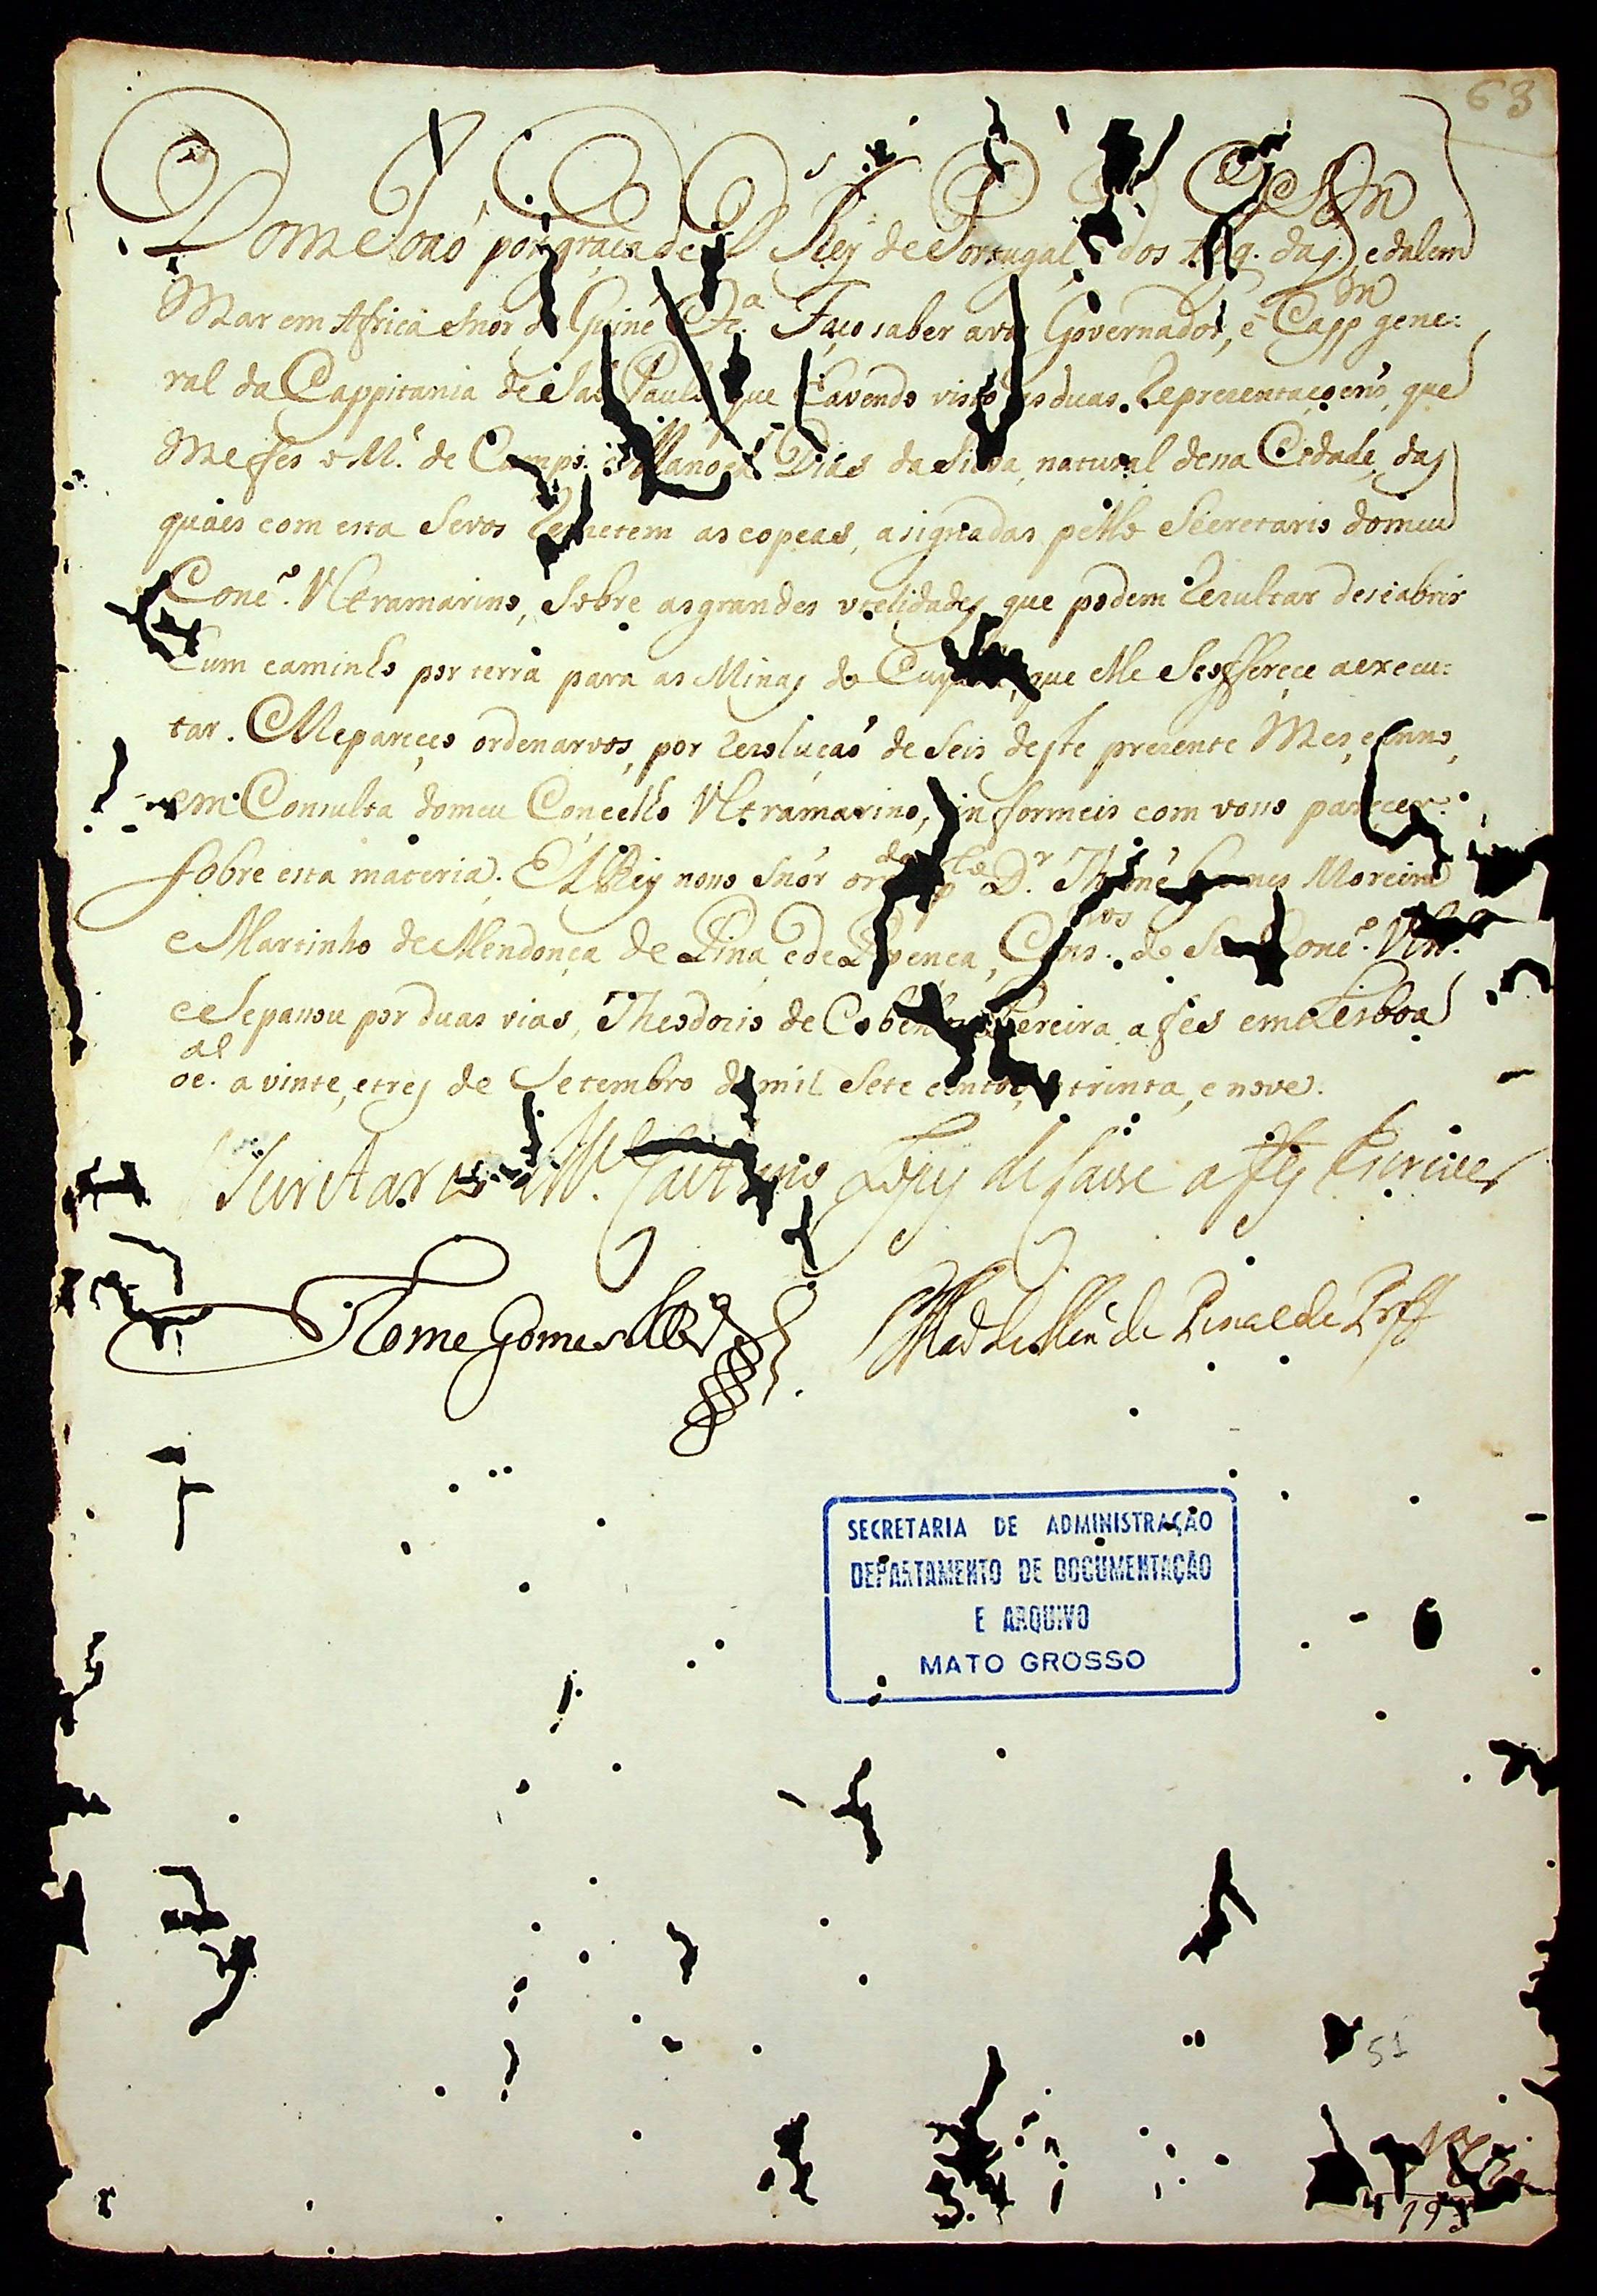 63
Dom Joaó por graça de D Rey de Portugal, dos Alg. daq. e dalem
Mar em Africa Snor de Guiné &c.ª Faço saber avós Governador, e Capp.m gene:
ral da Cappitania de Saó Paulo que havendo visto as duas Reprezentaçoens, que
me fes o M.e de Campo Manoel Dias da Silva, natural dessa Cidade, das
quaes com esta Sevos Remetem as copeas, asignadas pello Secretario domeu
Conc.º Ultramarino, Sobre as grandes utelidades que podem Rezultar deseabrir
hum caminho por terra para as Minas do Cuyabá, que elle Se offerece aexecu:
tar. Mepareceo ordenarvos, por Rezoluçaó de Seis deste prezente Mes, eanno,
em Consulta domeu Concelho Ultramarino, informeis com vosso parecer
Sobre esta materia. ElRey nosso Snór o mandou pello D.r Thomé Gomes Moreira
e Martinho de Mendonça de Pina, ede Proença, Cons.ros do Seu Conc.º Ultr.
eSepassou por duas vias, Theodozio de Cobellos Pereira afes em Lisboa
al
oc. a vinte, etres de Setembro de mil Sete centos, e trinta, e nove.
Secretario M.el Caetano Lopes de Lavre a fes Escrever
Thome Gomes Mor.a Mart.o de Men.ça de Pina e de Pr.ça
SECRETARIA DE ADMINISTRAÇÃO
DEPARTAMENTO DE DOCUMENTAÇÃO
E ARQUIVO
MATO GROSSO
51